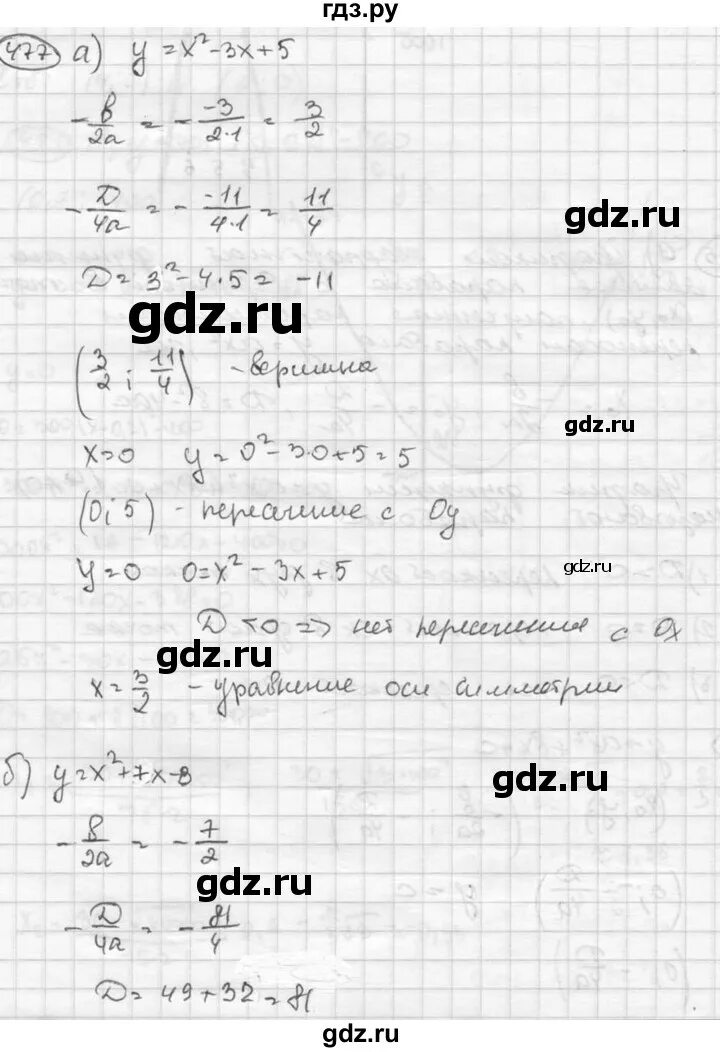 гдз.ру
477 а) y = x² - 3x + 5
-b/2a = - -3/2·1 = 3/2
-D/4a = - -11/4·1 = 11/4
gdz.ru
D = 3² - 4·5 = -11
gdz.ru
(3/2; 11/4) - вершина
gdz.ru
x=0 y = 0² - 3·0 + 5 = 5
(0; 5) - пересечение с Oy
y=0 0 = x² - 3x + 5
gdz.ru
D < 0 => нет пересечения с Ox
gdz.ru
x = 3/2 - уравнение оси симметрии
б) y = x² + 7x - 8
gdz.ru
-b/2a = -7/2
gdz.ru
-D/4a = -81/4
D = 49 + 32 = 81
gdz.ru
gdz.ru